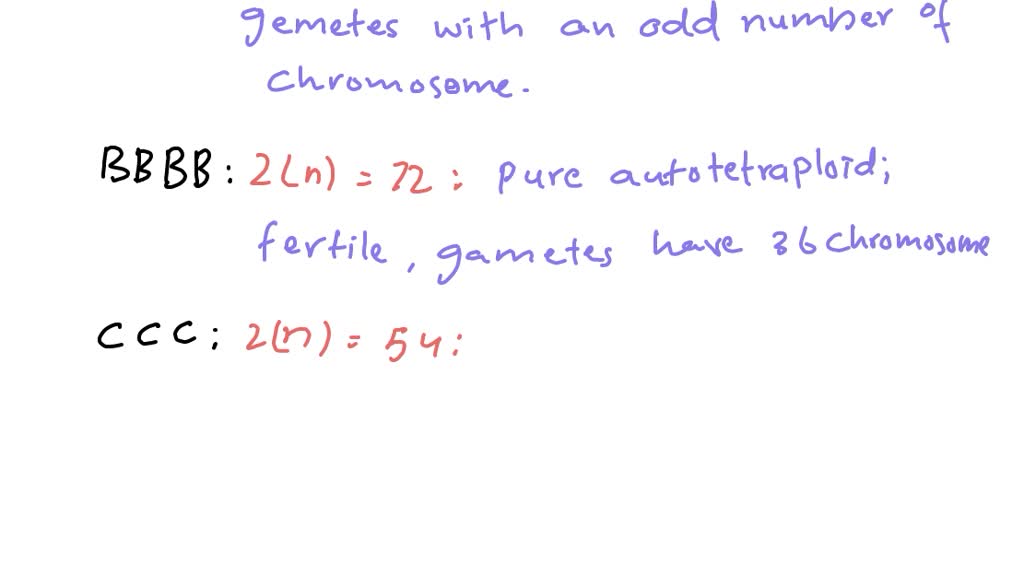 gemetes with an odd number of
chromosome.
BBBB: 2(n) = 72: pure autotetraploid;
fertile, gametes have 36 chromosome
CCC; 2(n) = 54: